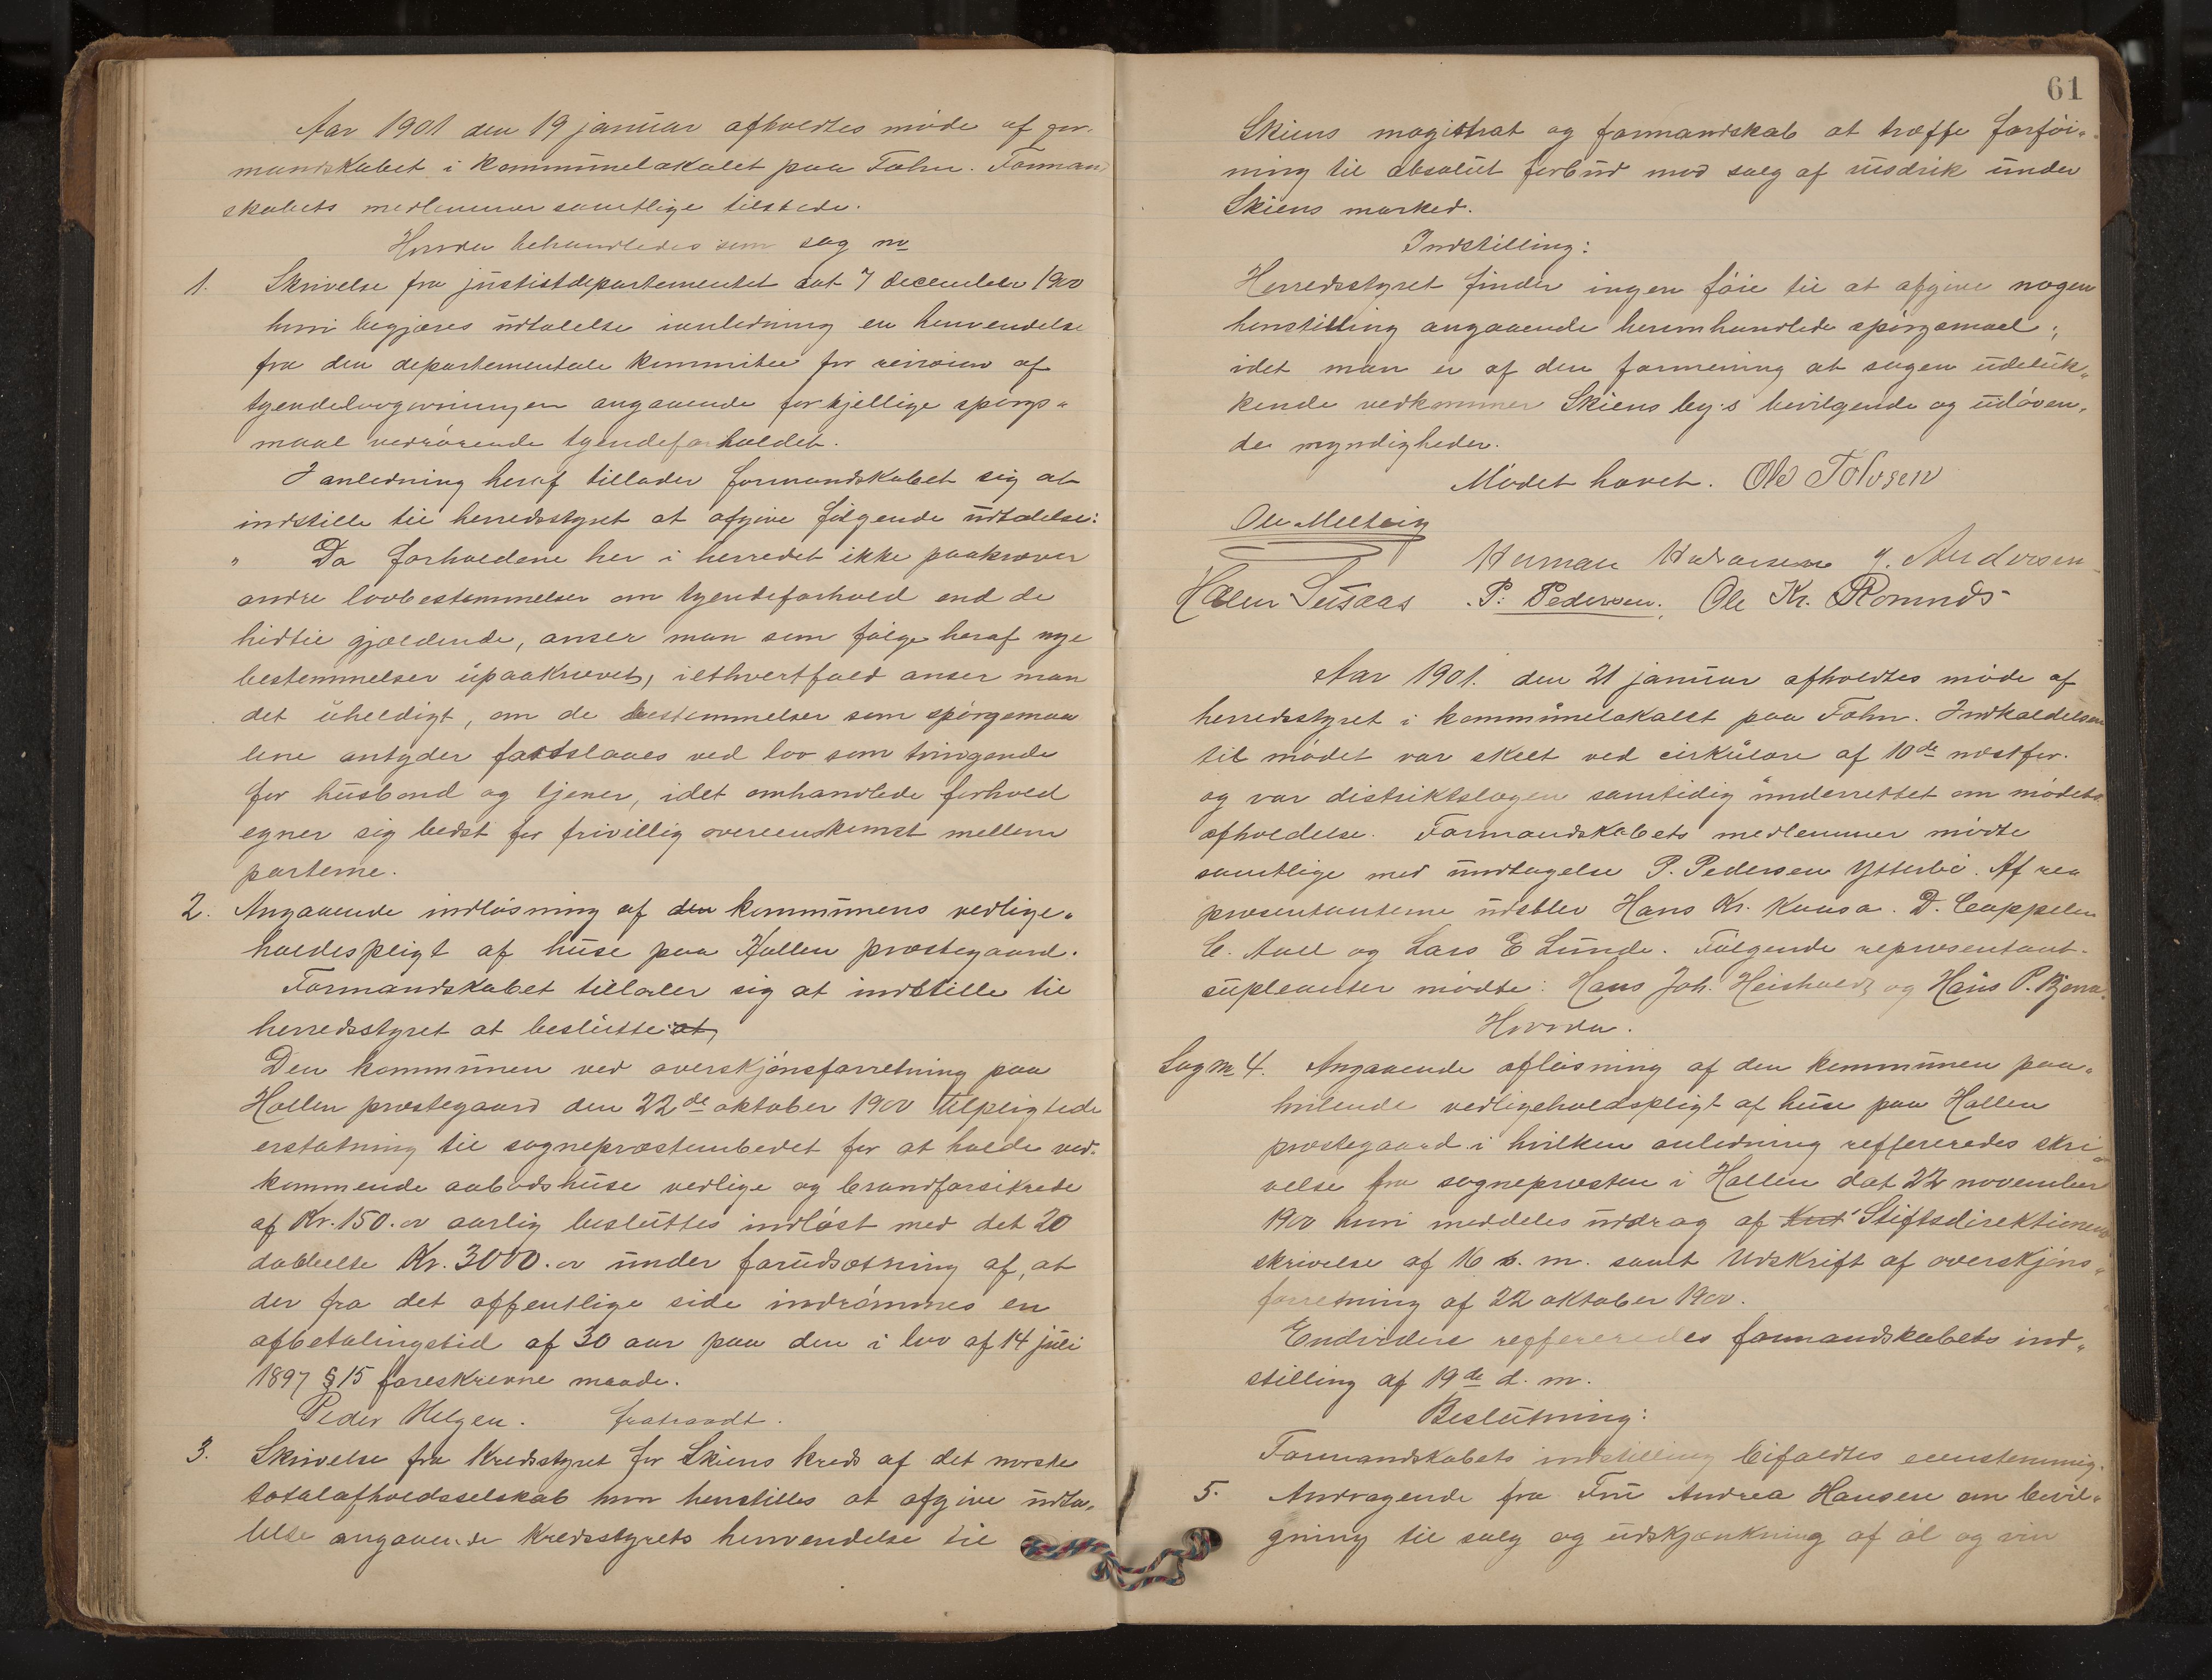 Aar 1901 den 19 januar afholdtes møde af for-
mandskabet i kommunelokalet paa Tahn. Forman
skabets medlemmer samtlige tilstede.
Hvorda behandledes som sag no
1. Skrivelse fra justistdepartementet dat 7 december 1900
hvori begjæres udtalelse ianledning en henvendelse
fra den departementale kommitee for revision af
tyendelovgivningen angaaende forskjellige spørgs-
maal vedrørende tyendeforholdet.
I anledning heraf tillader formandskabet sig at
indstille til herredsstyret at afgive følgende udtalelse:
" Da forholdene her i herredet ikke paakræver
andre lovbestemmelser om tyendeforhold end de
hidtil gjældende, anser man som følge heraf nye
bestemmelser upaakrævet, iethvertfald anser man
det uheldigt, om de bestemmelser som spørgsmaa
lene antyder fastslaaes ved lov som tvingende
for husbond og tjener, idet omhandlede forhold
egner sig bedst for frivillig overenskomst mellem
parterne.
2. Angaaende indløsning af den kommunens vedlige-
holdespligt af huse paa Hollen prestegaard.
Formandskabet tillader sig at indstille til
herredsstyret at beslutte at,
Den kommunen ved overskjønsforretning paa
Hollen prestegaard den 22de oktober 1900 tilpligtede
erstatning til sogneprestembedet for at holde ved-
kommende aabodshuse vedlige og brandforsikrede
af Kr. 150.00 aarlig besluttes indløst med det 20
dobbelte Kr. 3000.00 under forudsætning af, at
der fra det offentlige side indrømmes en
afbetalingstid af 30 aar paa den i lov af 14 juli
1897 § 15 foreskrevne maade.
Peder Helgen. fratraadt.
3. Skrivelse fra Kredsstyret for Skiens kreds af det norske
totalafholdsselskab hvor henstilles at afgive udta-
lelse angaaende Kredsstyrets henvendelse til
61
Skiens magistrat og formandskab at træffe forføi-
ning til absolut forbud mod salg af rusdrik under
Skiens marked.
Indstilling:
Herredsstyret finder ingen føie til at afgive nogen
henstilling angaaende heromhandlede spørgsmaal;
idet man er af den formening at sagen udeluk-
kende vedkommer Skiens by's bevilgende og udøven-
de myndigheder.
Mødet hævet. Ole Tolvsen
Ole Melteig
Herman Halvorsen J. Andersen
Halvor Lusaas P. Pedersen. Ole Kr. Romnds
Aar 1901. den 21 januar afholdtes møde af
herredsstyret i kommunelokalet paa Tahn. Indkaldelsen
til mødet var skeet ved cirkulære af 10de næstfor.
og var distriktslægen samtidig underrettet om mødets
afholdelse. Formandskabets medlemmer mødte
samtlige med undtagelse P. Pedersen Ytterbø. Af rea
præsentanterne udeblev Hans Kr. Kaasa. D. Cappelen
C. Aall og Lars E Lunde. Følgende representant-
supleanter mødte: Hans Joh. Heisholdt og Hans P. Bjerva.
Hvorda.
Sag no 4. Angaaende afløsning af den kommunen paa-
hvilende vedligeholdspligt af huse paa Hollen
prestegaard i hvilken anledning reffereredes skri-
velse fra sognepresten i Hollen dat 22 november
1900 hvori meddeles uddrag af Kret Stiftsdirektionens
skrivelse af 16 s. m. samt Udskrift af overskjøns-
forretning af 22 oktober 1900.
Endvidere reffereredes formandskabets ind-
stilling af 19de d. m.
Beslutning:
Formandskabets indstilling bifaldtes eenstemmig.
5. Andragende fra Fru Andrea Hansen om bevil-
gning til salg og udskjænkning af øl og vin